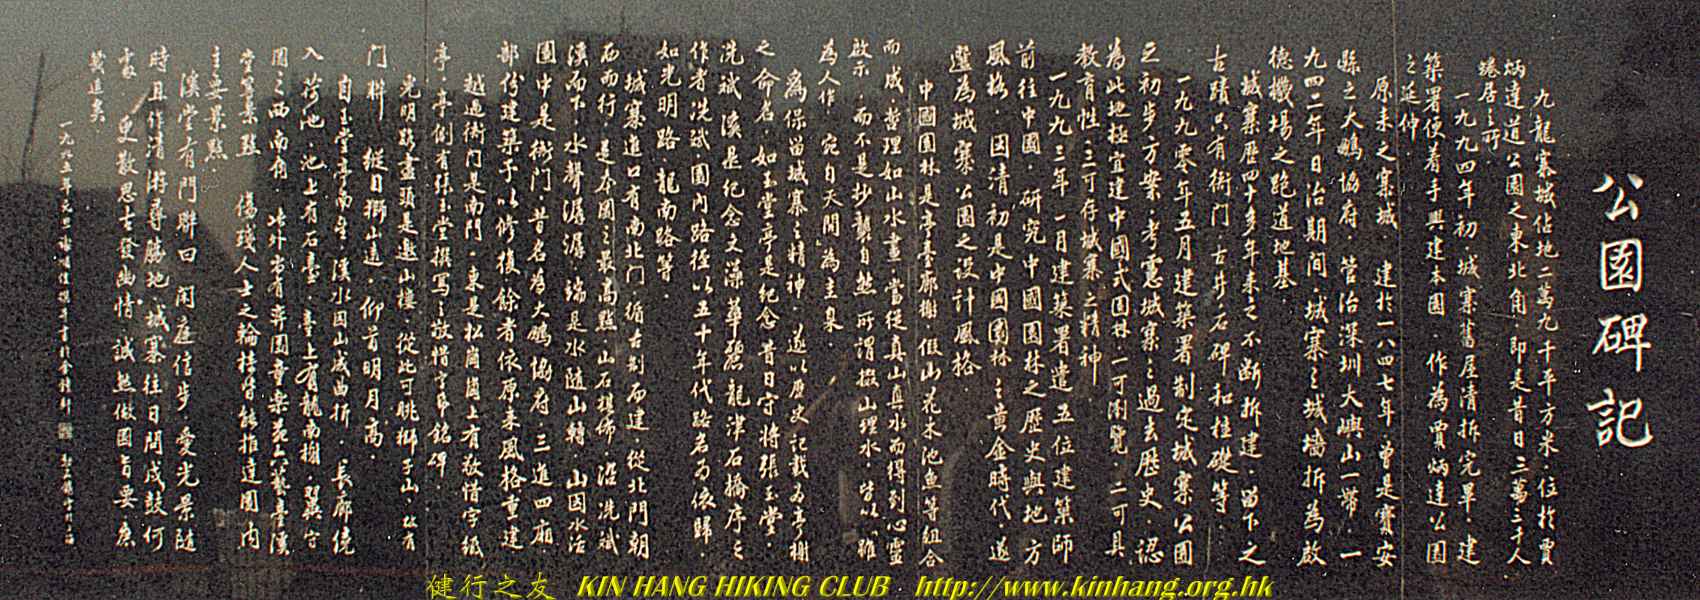 公園碑記
九龍寨城佔地二萬九千平方米，位於賈
炳達道公園之東北角，即是昔日三萬三千人
蜷居之所
一九九四年初，城寨舊屋清拆完畢，建
築署便着手興建本園，作為賈炳達公園
之延伸。
原來之寨城，建於一八四七年，曾是寶安
縣之大鵬協府，管治深圳大嶼山一帶，一
九四二年日治期間，城寨之城墻拆為啟
德機場之跑道地基。
城寨歷四十多年來之不斷拆建，留下之
古蹟只有衙門，古井，石碑和柱礎等。
一九九零年五月建築署制定城寨公園
之初步方案，考慮城寨之過去歷史，認
為此地極宜建中國式園林，一可瀏覽，二可具
教育性，三可存城寨之精神
一九九三年一月建築署遣五位建築師
前往中國，研究中國園林之歷史與地方
風格，因清初是中國園林之黃金時代，遂
選為城寨公園之設計風格
中國園林是亭臺廊榭，假山花木池魚等組合
而成，哲理如山水畫，當從真山真水而得到心靈
啟示，而不是抄襲自然，所謂掇山理水，皆以「雖
為人作，宛自天開」為主臬。
為保留城寨之精神，遂以歷史記載為亭榭
之命名，如玉堂亭是紀念昔日守將張玉堂，
冼斌溪是紀念文藻華麗龍津石橋序之
作者冼斌，園內路徑以五十年代路名為依歸，
如光明路，龍南路等。
城寨進口有南北門，循古制而建，從北門朝
西而行，是本園之最高點，山石棋佈，沿冼斌
溪而下，水聲潺潺，端是水隨山轉，山因水活
園中是衙門，昔名為大鵬協府，三進四廂，
部份建築予以修復，餘者依原來風格重建
越過衙門是南門，東是松崗，崗上有敬惜字紙
亭，亭側有張玉堂撰寫之敬惜字帛銘碑。
光明路盡頭是邀山樓，從此可眺獅子山，故有
門聯，縱目獅山遠，仰首明月高。
自玉堂亭南行，溪水因山成曲折，長廊繞
入荷池，池上有石臺，臺上有龍南榭，翼守
園之西南角，此外尚有棄園童樂苑，藝臺溪
堂等景點，傷殘人士之輪椅皆能推達園內
主要景點。
溪堂有門聯曰，閑庭信步，愛光景隨
時且作清游尋勝地，城寨往日閧戍鼓何
處，更教思古發幽情，誠然做園旨要庶
幾進矣。
健行之友 KIN HANG HIKING CLUB http://www.kinhang.org.hk